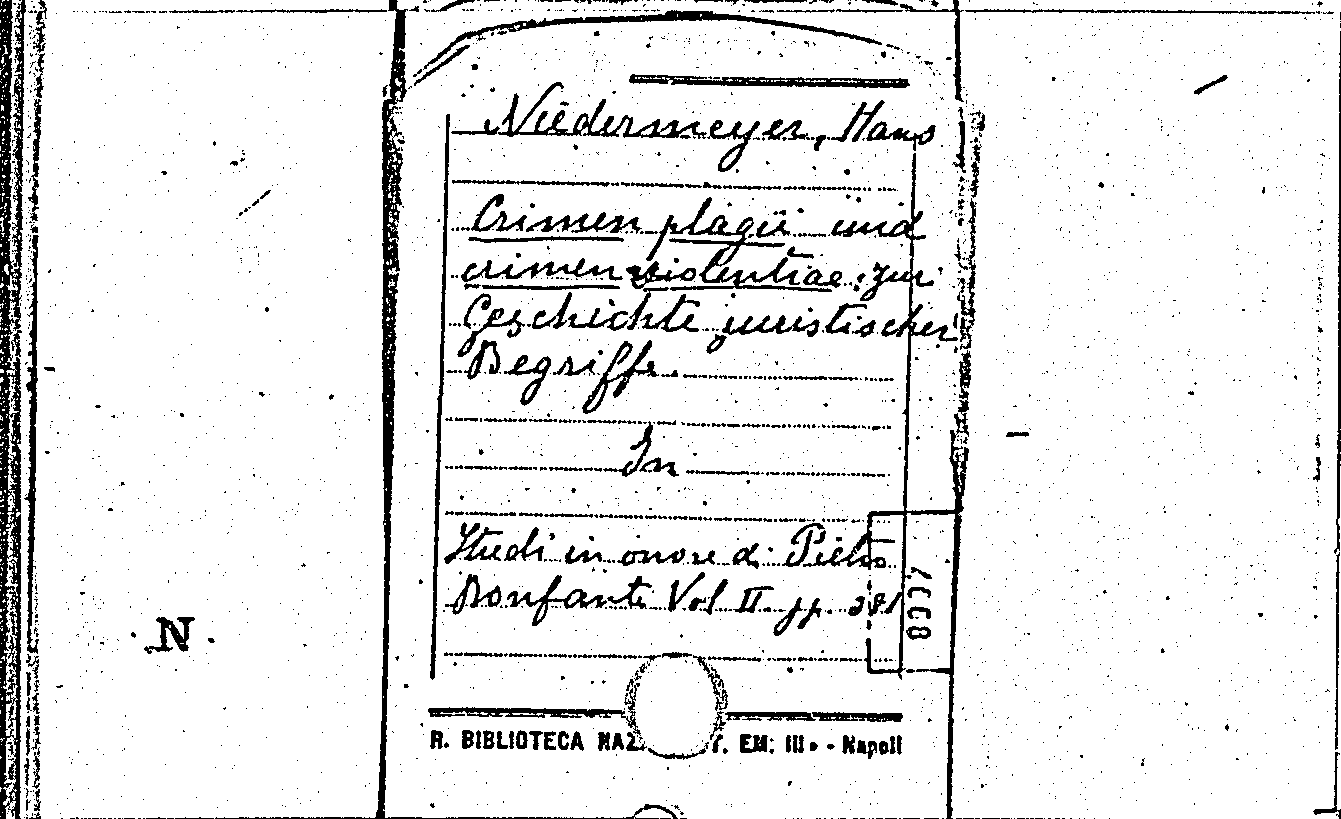 Niedermeyer, Hans
Crimen plagii und
crimen violentiae: zur
Geschichte juristischer
Begriffe.
In
Studi in onore di Pietro
Bonfante Vol II. pp. 381
N
R. BIBLIOTECA NAZ. T. EM: III - Napoli